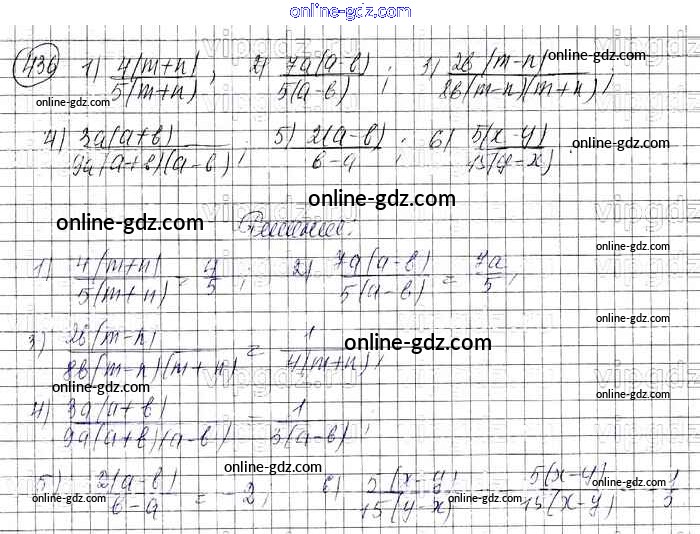 online-gdz.com
436 1) 4(m+n)/5(m+n); 2) 7a(a-b)/5(a-b); 3) 2b(m-n)/8b(m-n)(m+n);
online-gdz.com online-gdz.com online-gdz.com
4) 3a(a+b)/9a(a+b)(a-b); 5) 2(a-b)/b-a; 6) 5(x-y)/15(y-x).
online-gdz.com online-gdz.com
online-gdz.com online-gdz.com
Решение:
1) 4(m+n)/5(m+n) = 4/5; 2) 7a(a-b)/5(a-b) = 7a/5;
online-gdz.com
3) 2b(m-n)/8b(m-n)(m+n) = 1/4(m+n);
online-gdz.com
online-gdz.com online-gdz.com
4) 3a(a+b)/9a(a+b)(a-b) = 1/3(a-b);
online-gdz.com
5) 2(a-b)/b-a = -2; 6) 5(x-y)/15(y-x) = -5(x-y)/15(x-y) = -1/3
online-gdz.com online-gdz.com online-gdz.com